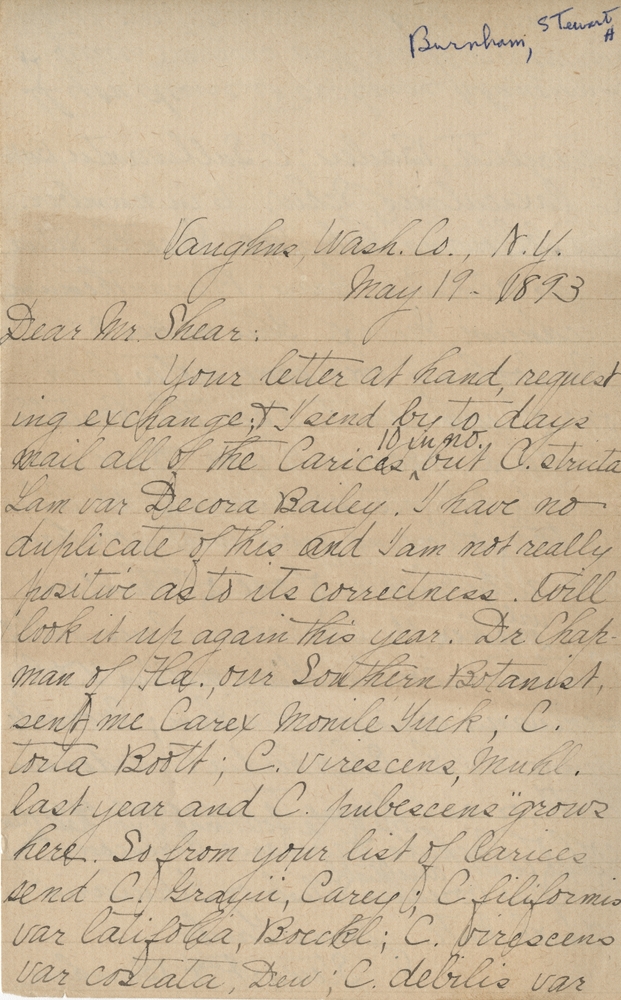 Burnham, Stewart H
Vaughns, Wash. Co., N.Y.
May 19 - 1893
Dear Mr. Shear:
Your letter at hand, request
ing exchange; & I send by to days
mail all of the Carices, 10 in no. but C. stricta
Lam var Decora Bailey. I have no
duplicate of this and I am not really
positive as to its correctness. Will
look it up again this year. Dr Chap-
man of Fla., our Southern Botanist,
sent me Carex Monile Tuck; C.
torta Boott; C. virescens, Muhl.
last year and C. pubescens "grows
here. So from your list of Carices
send C. Grayii, Carey; C filiformis
var latifolia, Boeckl; C. virescens
var costata, Dew; C. debilis var